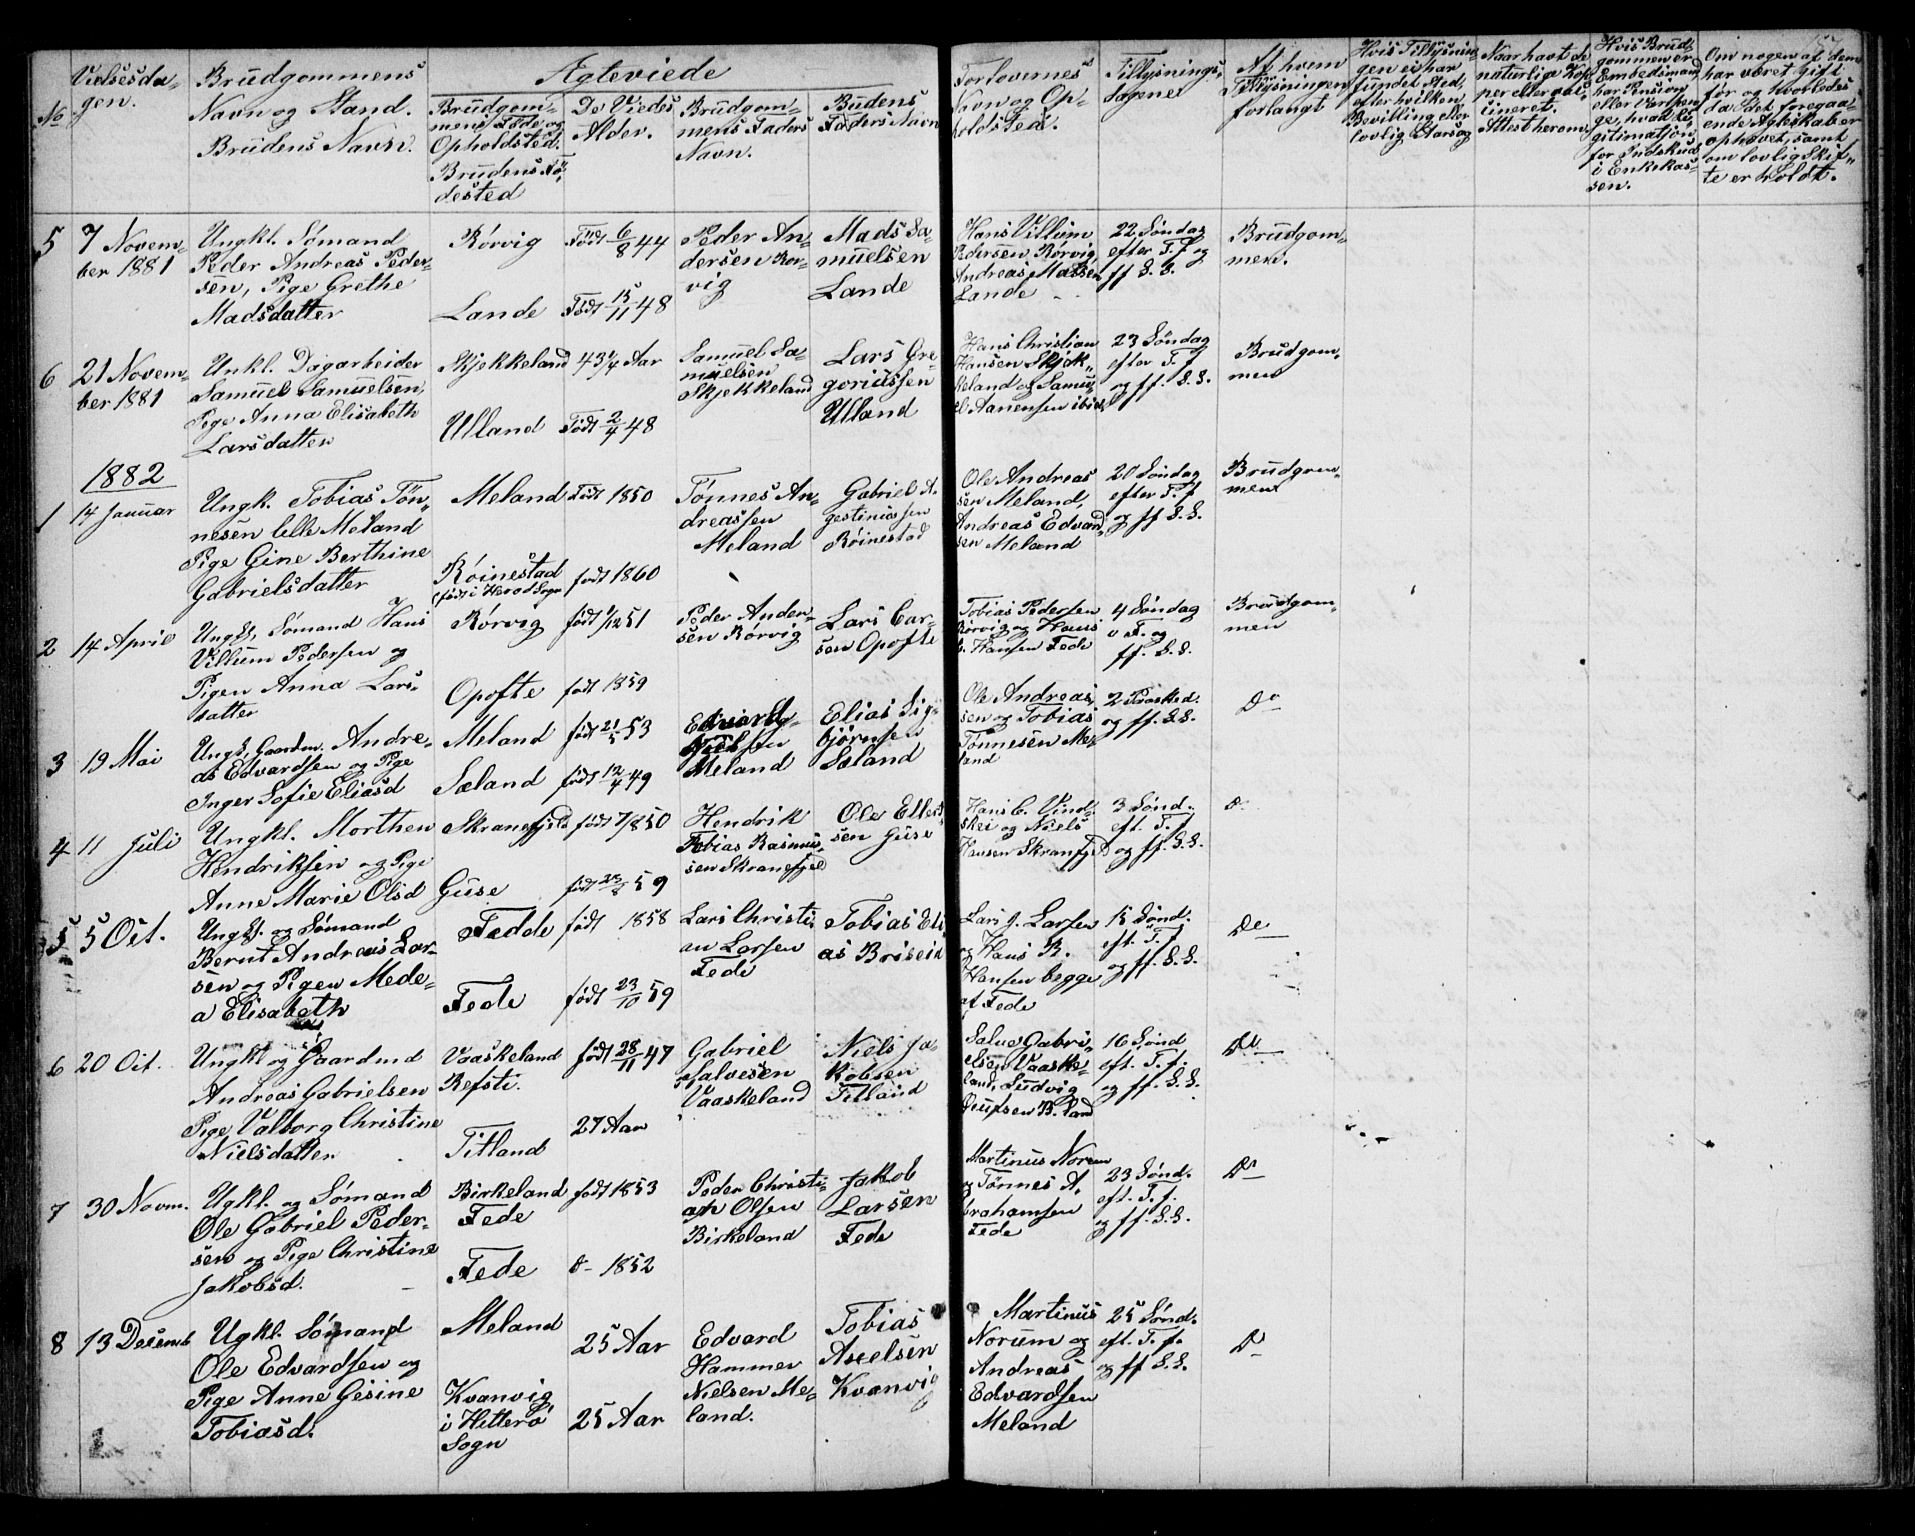 Ægteviede
No
Vielsesda-
gen.
Brudgommens
Navn og Stand.
Brudens Navn.
Brudgom-
mens Føde og
Opholdsted.
Brudens Fö-
dested
De Viedes
Alder.
Brudgom-
mens Faders
Navn.
Budens
Faders Navn
Forlovernes
Navn og Op-
holdsted.
Tillysnings-
dagene
Af hvem
Tillysningen
forlangt
Hvis Tillysnin-
gen ei har
fundet Sted,
efter hvilken
Bevilling eller
lovlig
Naar havt de
naturlige Kop-
per eller
Attest herom.
Hvis Brud-
gommen er
Embedsmand,
har Pension
eller
ge, hvad Le-
gitimation
for Indskud
i Enkekas-
sen.
Om nogen af dem
har været Gift
før og hvorledes
da det foregaa-
ende Ægteskab er
ophævet, samt
om lovlig Skif-
te er holdt.
5
7 Novem-
ber 1881
Ungkl. Sømand
Peder Andreas Peder-
sen, Pige Grethe
Madsdatter
Rørvig
Lande
Födt 6/8 44
Födt 15/11 48
Peder An-
dersen Rør-
vig
Mads Sa-
muelsen
Lande
Hans Villum
Pedersen Rørvig,
Andreas Madsen
Lande
22 Søndag
efter T. f og
ff S. S.
Brudgom-
men.
6
21 Novem-
ber 1881
Unkl. Dagarbeider
Samuel Samuelsen,
Pige Anna Elisabeth
Larsdatter
Skjekkeland
Ulland
43 1/4 Aar
Födt 2/4 48
Samuel Sa-
muelsen
Skjekkeland
Lars Gre-
goriussen
Ulland
Hans Christian
Hansen Skjek-
keland og Samu-
el Aanensen ibid.
23 Søndag
efter T. f
og ff. S. S.
Brudgom-
men
1882
1
14 Januar
Ungk. Tobias Tön-
nesen lille Meland
Pige Gine Berthine
Gabrielsdatter
Meland
Røinestad
(født i Herad Sogn
Födt 1850
født 1860
Tønnes An-
dreassen
Meland
Gabriel A-
gestinussen
Røinestad
Ole Andreas
sen Meland,
Andreas Edvard-
sen Meland
20 Søndag
efter T. f
og ff S. S.
Brudgom-
men
2
14 April
Ungk, Sømand Hans
Villum Pedersen og
Pigen Anna Lars-
datter
Rørvig
Opofte
født 1/12 51
født 1859
Peder Ander-
sen Rørvig
Lars Lar-
sen Opofte
Tobias Pedersen
Rørvig og Hans
Hansen Fede
4 Søndag
v F. og
ff. S. S.
Brudgom-
men
3
19 Mai
Ungk, Gaardm. Andre-
as Edvardsen og Pige
Inger Sofie Eliasd
Meland
Sæland
født 21/5 53
født 12/4 49
Edvard
Nielsen
Meland
Elias Sig-
bjørnsen
Sæland
Ole Andreas
sen og Tobias
Tønnesen Me-
land
2 Paasked.
og ff. S. S.
Do
4
11 Juli
Ungkl. Morthen
Hendriksen og Pige
Anne Marie Olsd
Skranefjeld
Guse
født 7/8 50
født 59
Hendrik
Tobias Rasmus-
sen Skranefjeld
Ole Ellert-
sen Guse
Hans C. Vind-
skei og Niels
Hansen Skranfjeld
3 Sønd.
eft. T. f
og ff. S. S.
Do
5
5 Oct.
Ungk. og Sømand
Bernt Andreas Lar-
sen og Pigen Mede-
a Elisabeth
Fedde
Fede
født 1858
født 23/10 59
Lars Christi-
an Larsen
Fede
Tobias Eli-
as Briseid
Lars J. Larsen
og Hans R.
Hansen begge
af Fede
15 Sønd.
eft. T. f
og ff. S. S.
Do
6
20 Oct.
Ungkl og Gaardmd
Andreas Gabrielsen
Pige Valborg Christine
Nielsdatter
Vaaskeland
Refsti.
Titland
født 28/11 47
27 Aar
Gabriel
Salvesen
Vaaskeland
Niels Ja-
kobsen
Titland
Salve Gabri-
elsen Vaaske-
land, Ludvig
16 Sønd
eft. T. f.
og ff. S. S.
Do
7
30 Novm.
Ugkl. og Sømand
Ole Gabriel Peder-
sen og Pige Christine
Jakobsd.
Birkeland
Fede
Fede
født 1853
do 1852
Peder Christi-
an Olsen
Birkeland
Jakob
Larsen
Fede
Martinus Norum
og Tønnes A-
brahamsen
Fede
23 Sønd.
eft. T. f.
og ff. S. S.
Do
8
13 Decemb
Ugkl. Sømand
Ole Edvardsen og
Pige Anne Gesine
Tobiasd.
Meland
Kvanvig
i Hitterø
Sogn
25 Aar
25 Aar
Edvard
Hammer
Nielsen Me-
land.
Tobias
Axelsen
Kvanvig
Martinus
Norum og
Andreas
Edvardsen
Meland
25 Sønd.
eft. T. f.
og ff S. S.
Do